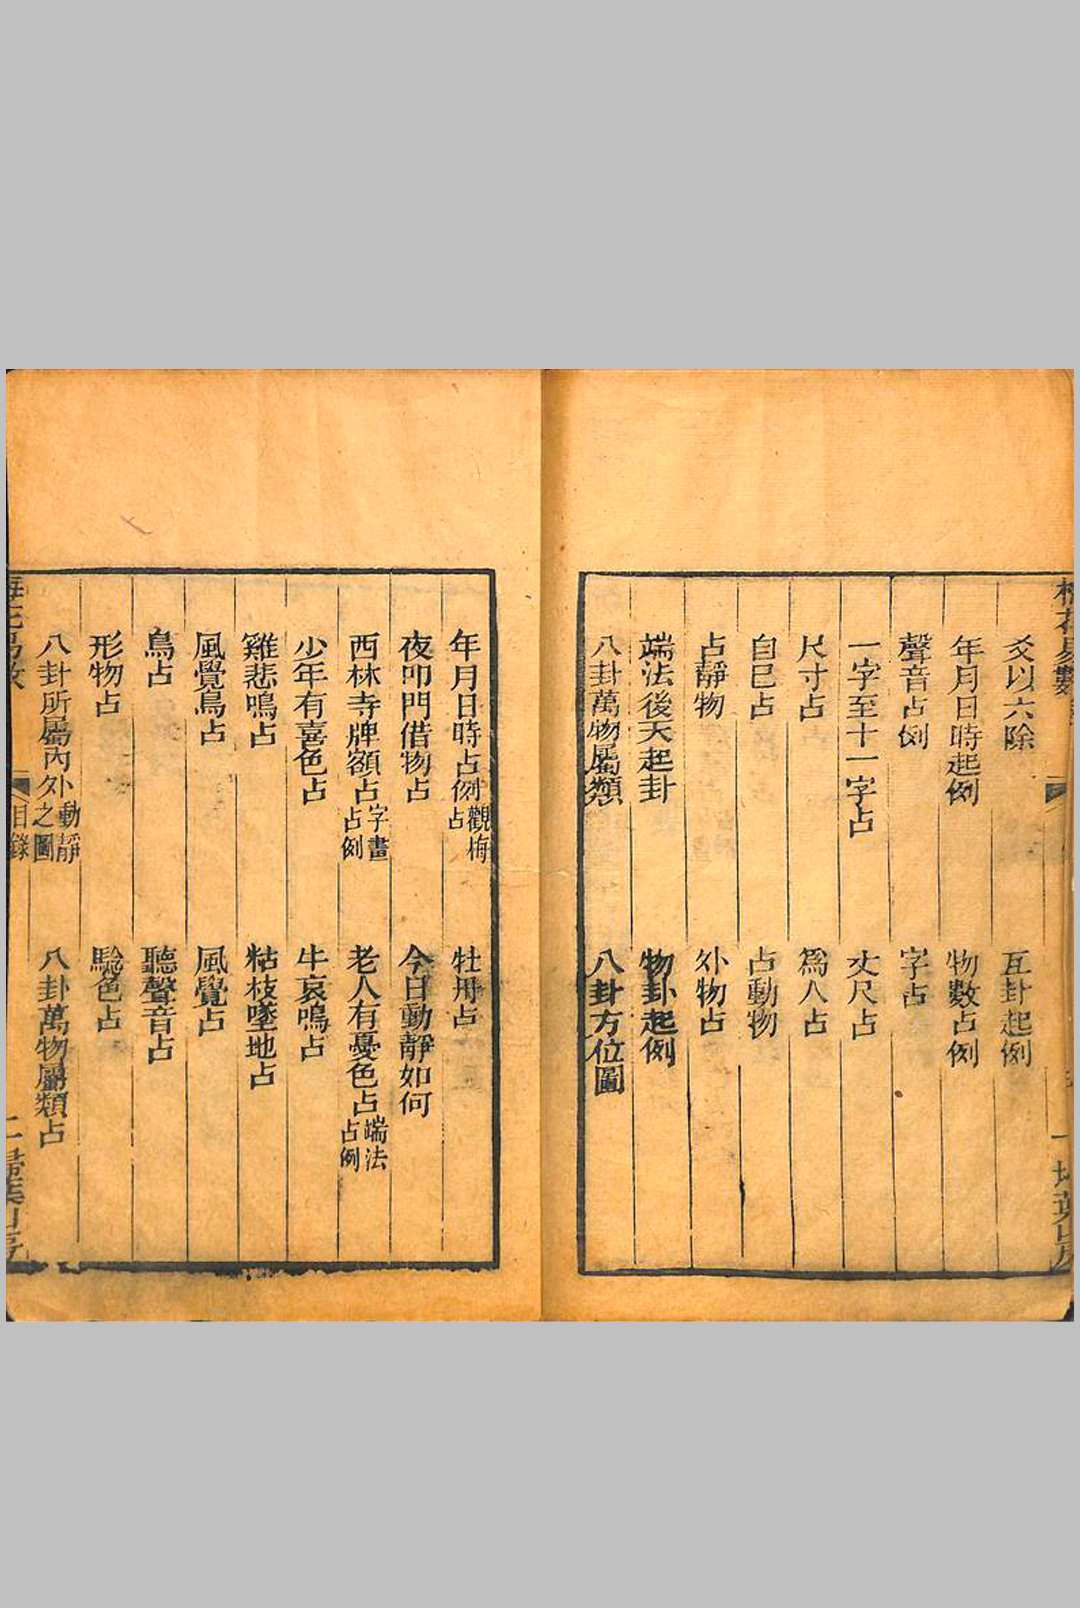 爻以六除　互卦起例
年月日時起例　物數占例
聲音占例　字占
一字至十一字占　丈尺占
尺寸占　爲人占
自己占　占動物
占靜物　外物占
端法後天起卦　物卦起例
八卦萬物屬類　八卦方位圖
年月日時占例觀梅占　牡丹占
夜叩門借物占　今日動靜如何
西林寺牌額占字畫占例　老人有憂色占端法占例
少年有喜色占　牛哀鳴占
雞悲鳴占　枯枝墜地占
風覺鳥占　風覺占
鳥占　聽聲音占
形物占　驗色占
八卦所屬內外動靜之圖　八卦萬物屬類占
目錄　二